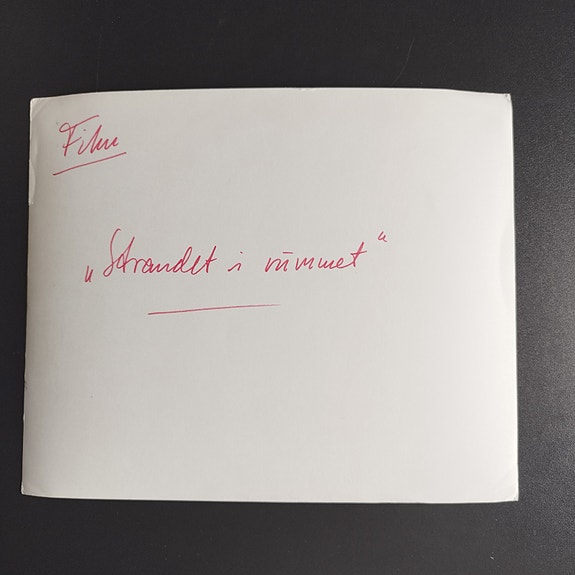 Film
„Strandet i rummet“